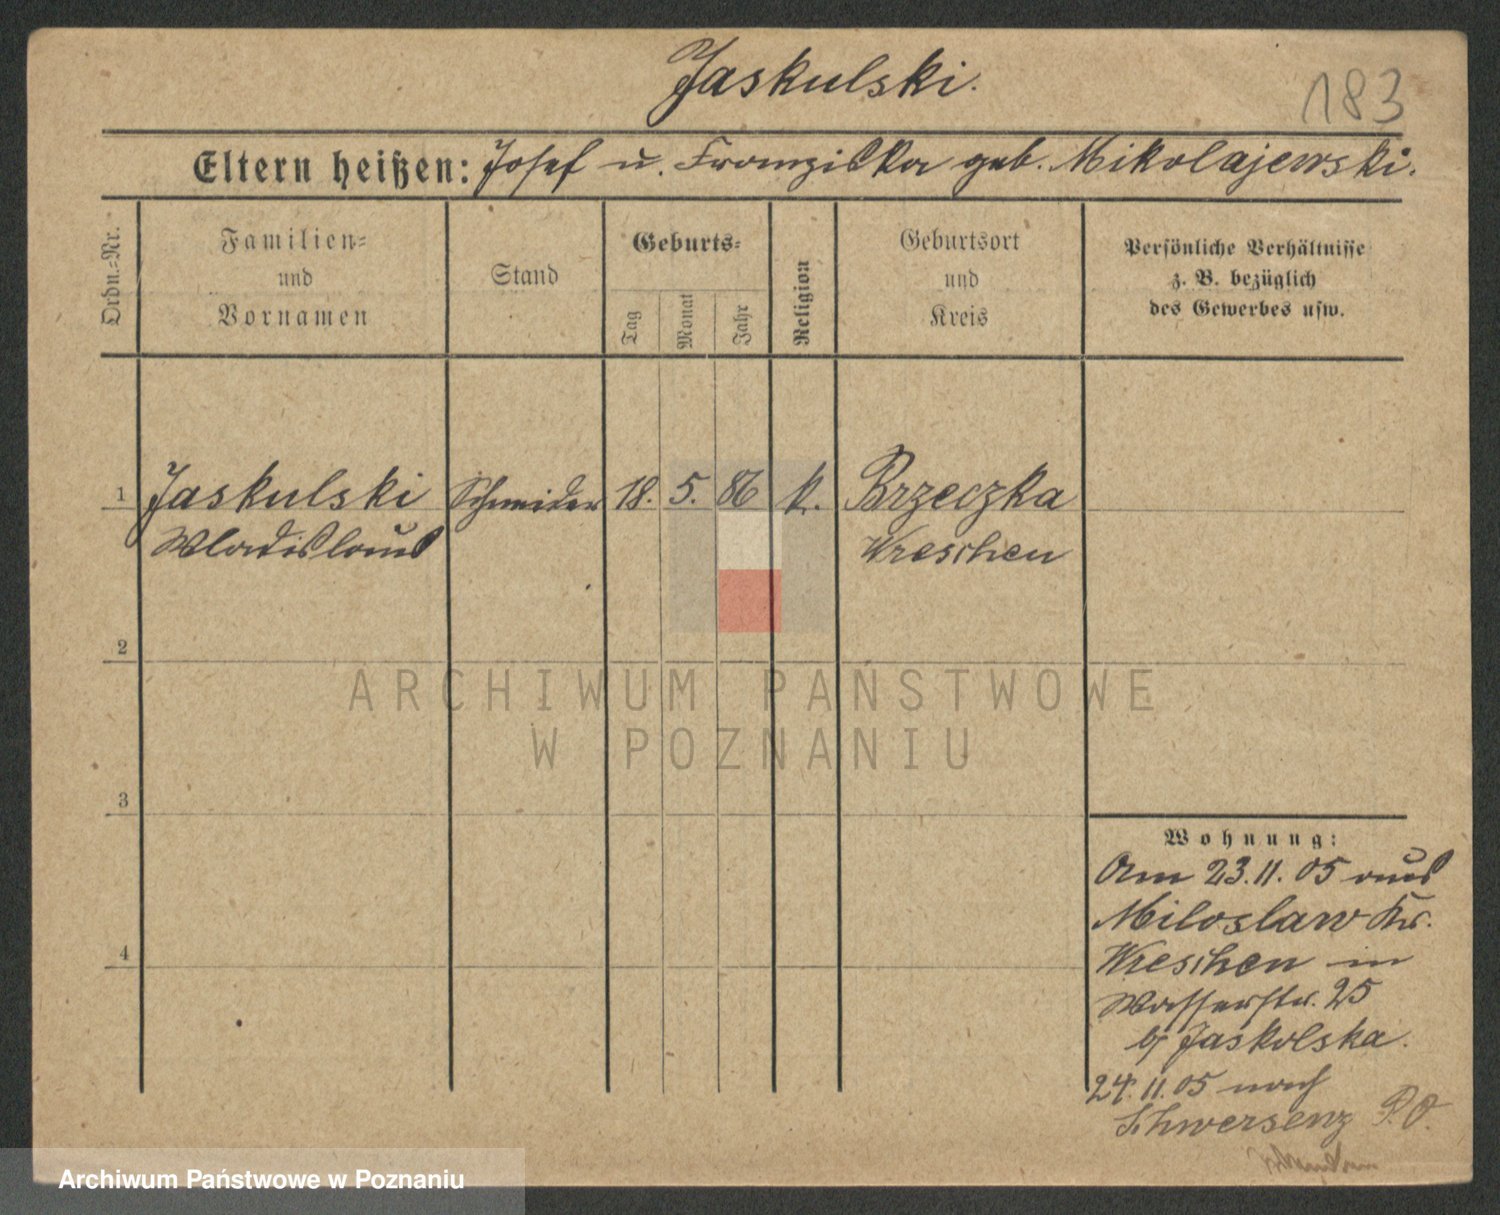 Jaskulski.
183
Eltern heißen: Josef u. Franziska geb. Mikolajewski.
Ordn.=Nr.
Familien=
und
Vornamen
Stand
Geburts=
Tag
Monat
Jahr
Religion
Geburtsort
und
Kreis
Persönliche Verhältnisse
z. B. bezüglich
des Gewerbes usw.
1 Jaskulski Schneider 18. 5. 86 k. Brzeczka
Wladislaus Wreschen
2
ARCHIWUM PAŃSTWOWE
W POZNANIU
3
Wohnung:
Am 23.11.05 aus
Miloslaw Kr.
4
Wreschen in
Wasserstr. 25
bj Jaskolska.
24.11.05 nach
Schwersenz P.O.
Archiwum Państwowe w Poznaniu